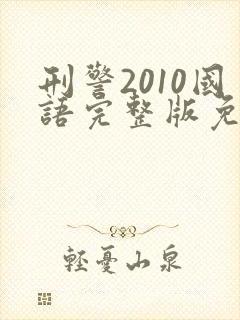 刑警2010國
語完整版免
輕憂山泉